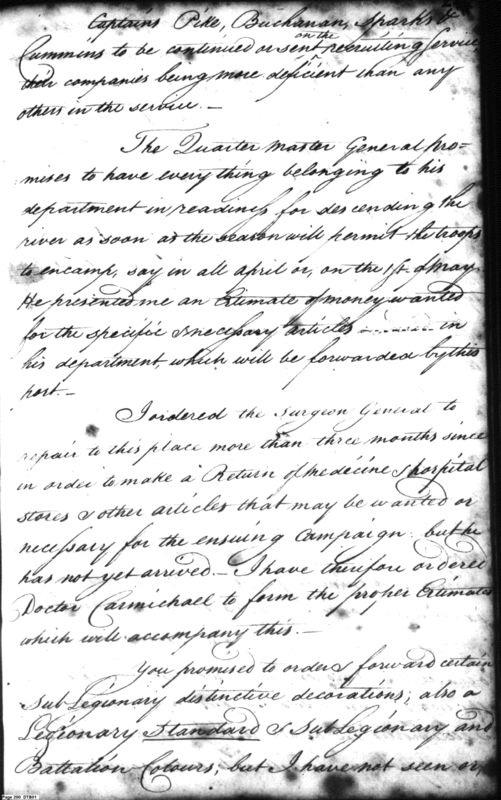 Captains Pike, Buchanan, Sparks &
Cummins to be continued or sent on the recruiting service
their companies being more deficient than any
others in the service. —
The Quarter Master General pro-
mises to have every thing belonging to his
department in readiness for descending the
river as soon as the season will permit the troops
to encamp, say in all April or, on the 1st. of May.
He presented me an Estimate of money wanted
for the specific & necessary articles in
his department, which will be forwarded by this
post. —
I ordered the Surgeon General to
repair to this place more than three months since
in order to make a Return of Medecine & hospital
stores & other articles that may be wanted or
necessary for the ensuing Campaign. but he
has not yet arrived. — I have therefore ordered
Doctor Carmichael to form the proper Estimates
which will accompany this. —
You promised to order & forward certain
Sub Legionary distinctive decorations; also a
Legionary Standard & Sub Legionary and
Battalion Colours; but I have not seen or,